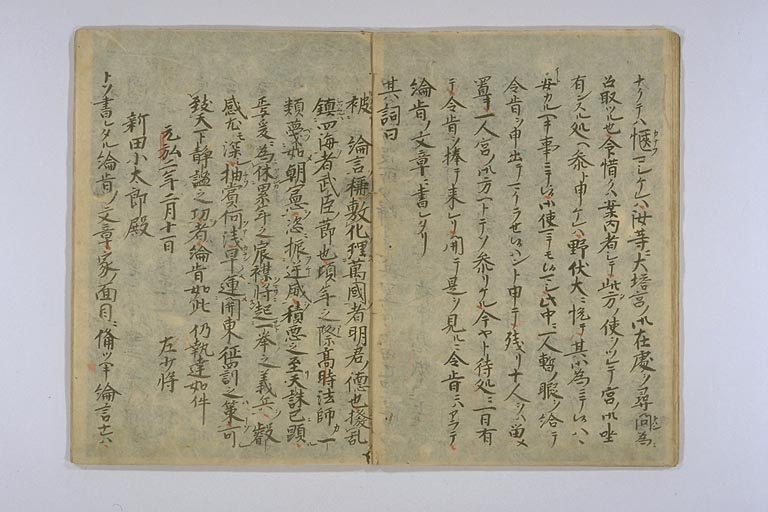 ナクテハ惬マシケレハ汝等ニ大塔宮ノ御在處ヲ尋問為
召取ツル也今惜クハ案内者シテ此方ノ使ヲツレテ宮ノ御坐
有ンスル処ヘ参ト申ケレハ野伏大ニ悦テ其御為ニテ候ハヽ
安カルヘキ事ニテ候御使ニテモ候ヘシ此中ニ一人暫ノ暇ヲ給テ
令旨ヲ申出テマイラセ候ハント申テ残リ十人ヲハ留メ
置キ一人宮ノ御方ヘトテソ参リケル今ヤト待処ニ一日有
テ令旨ヲ捧テ来レリ開テ是ヲ見ルニ令旨ニハアラテ
綸旨ノ文章ニ書レタリ
其詞曰
被 綸言稱敷化理萬國者明君德也撥乱
鎮四海者武臣節也頃年之際高時法師一
類蔑如朝憲恣振逆威積悪之至天誅已顕
焉爰為休累年之宸襟将起一挙之義兵叡
感尤深抽賞何浅早運関東征罰之策可
致天下静謐之功者綸旨如此仍執達如件
元弘二年二月十一日 左少将
新田小太郎殿
トソ書レタル綸旨ノ文章家ノ面目ニ備ツヘキ綸言ナレハ